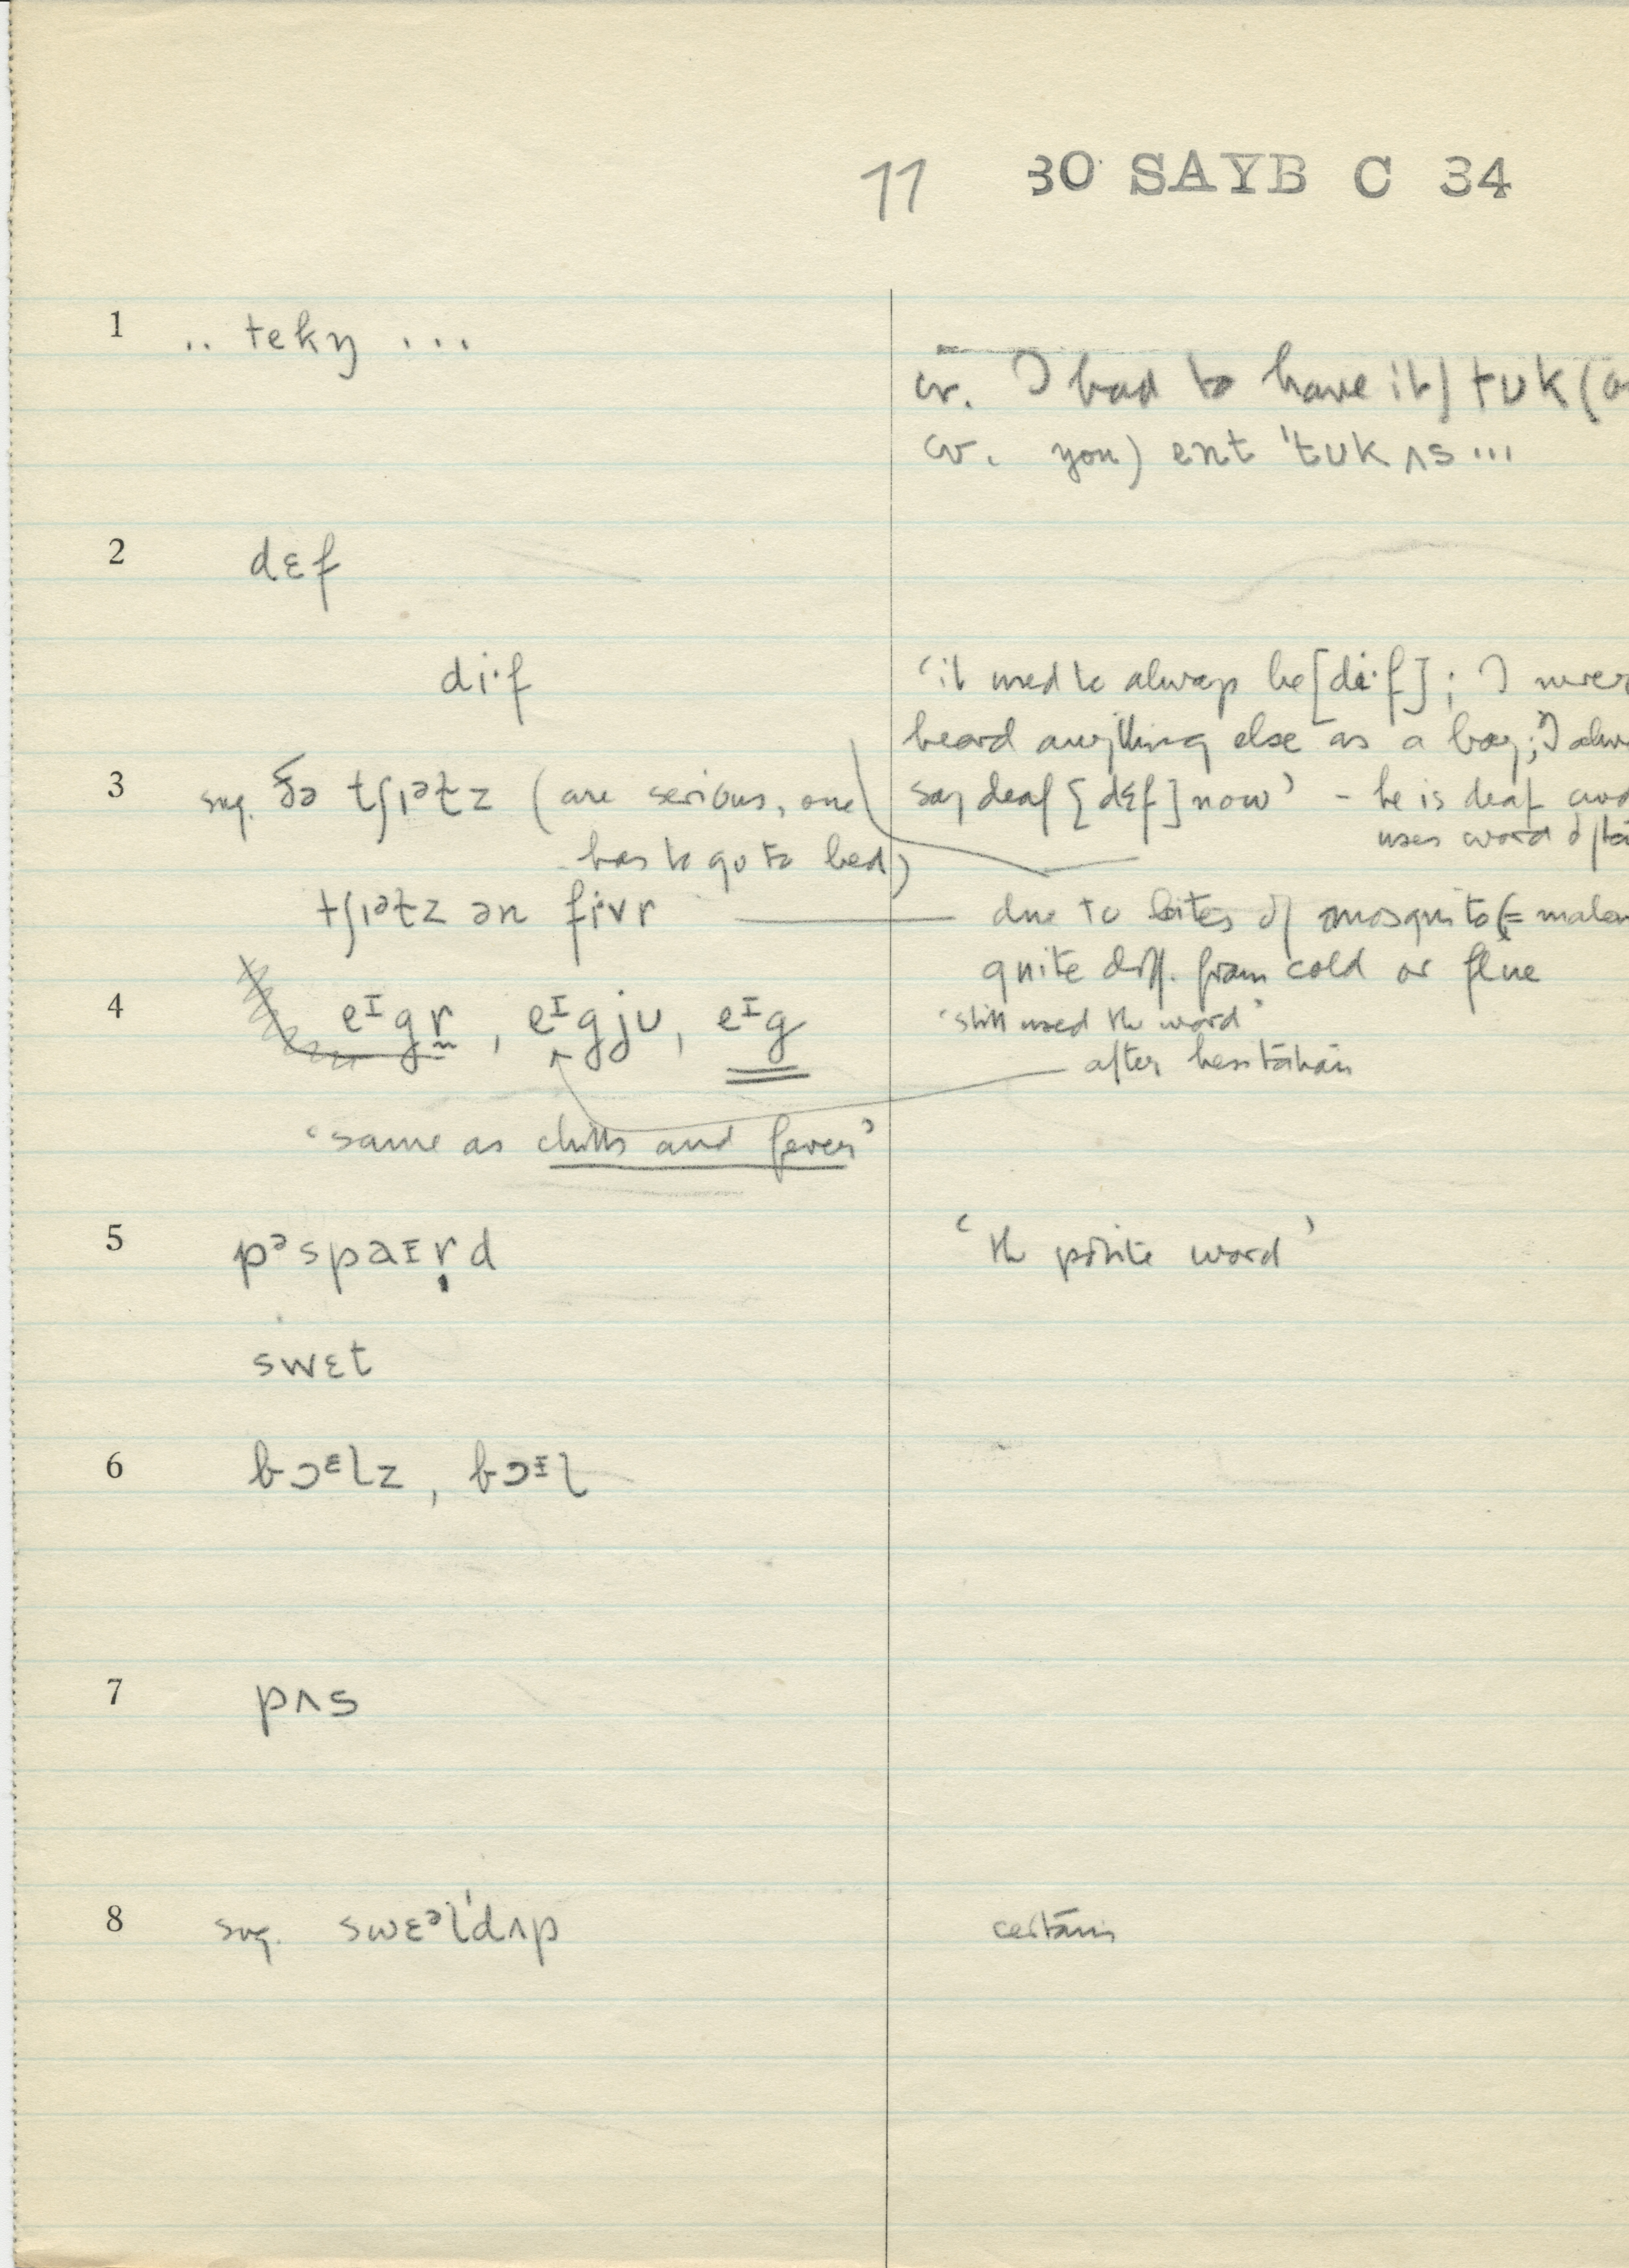 11 30 SAYB C 34
1 .. tekŋ ...
cr. I had to have it) tᴜk (
cv. you) ent 'tᴜk ʌs ...
2 dɛf
di·f
'it used to always be [di·f]; I never
heard anything else as a boy; I
say deaf [dɛf] now' - he is deaf and
uses word
3 sug. ðə tʃɪᵊɫz (are serious, one
has to go to bed)
tʃɪᵊɫz ən fivr — due to bites of mosquito
quite diff. from cold or flue
4 eᶦgr, eᶦgjᴜ, eᶦg
'still used the word'
after hesitation
'same as chills and fever'
5 pᵊspaɪṛd
'the polite word'
swɛt
6 bɔᵋlz, bɔᶦl
7 pʌs
8 sug. swɛᵊl'dʌp
certain